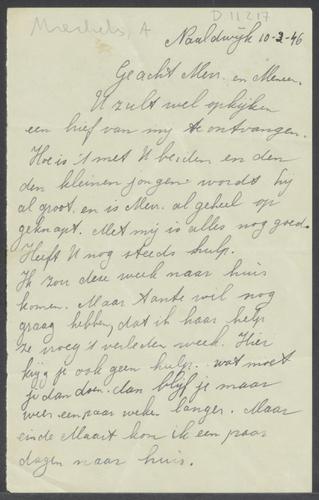 Mechels, A
D 11217
Naaldwijk 10-3-46
Geacht Mevr. en Meneer.
U zult wel opkijken
een brief van mij te ontvangen.
Hoe is 't met U beiden en den
den kleinen jongen wordt hij
al groot. en is Mevr. al geheel op
geknapt. Met mij is alles nog goed.
Heeft U nog steeds hulp.
Ik zou deze week naar huis
komen. Maar Tante wil nog
graag hebben dat ik haar help
ze vroeg 't verleden week. Hier
krijg je ook geen hulp. wat moet
je dan doen. dan blijf je maar
weer een paar weken langer. Maar
einde Maart kon ik een paar
dagen naar huis.